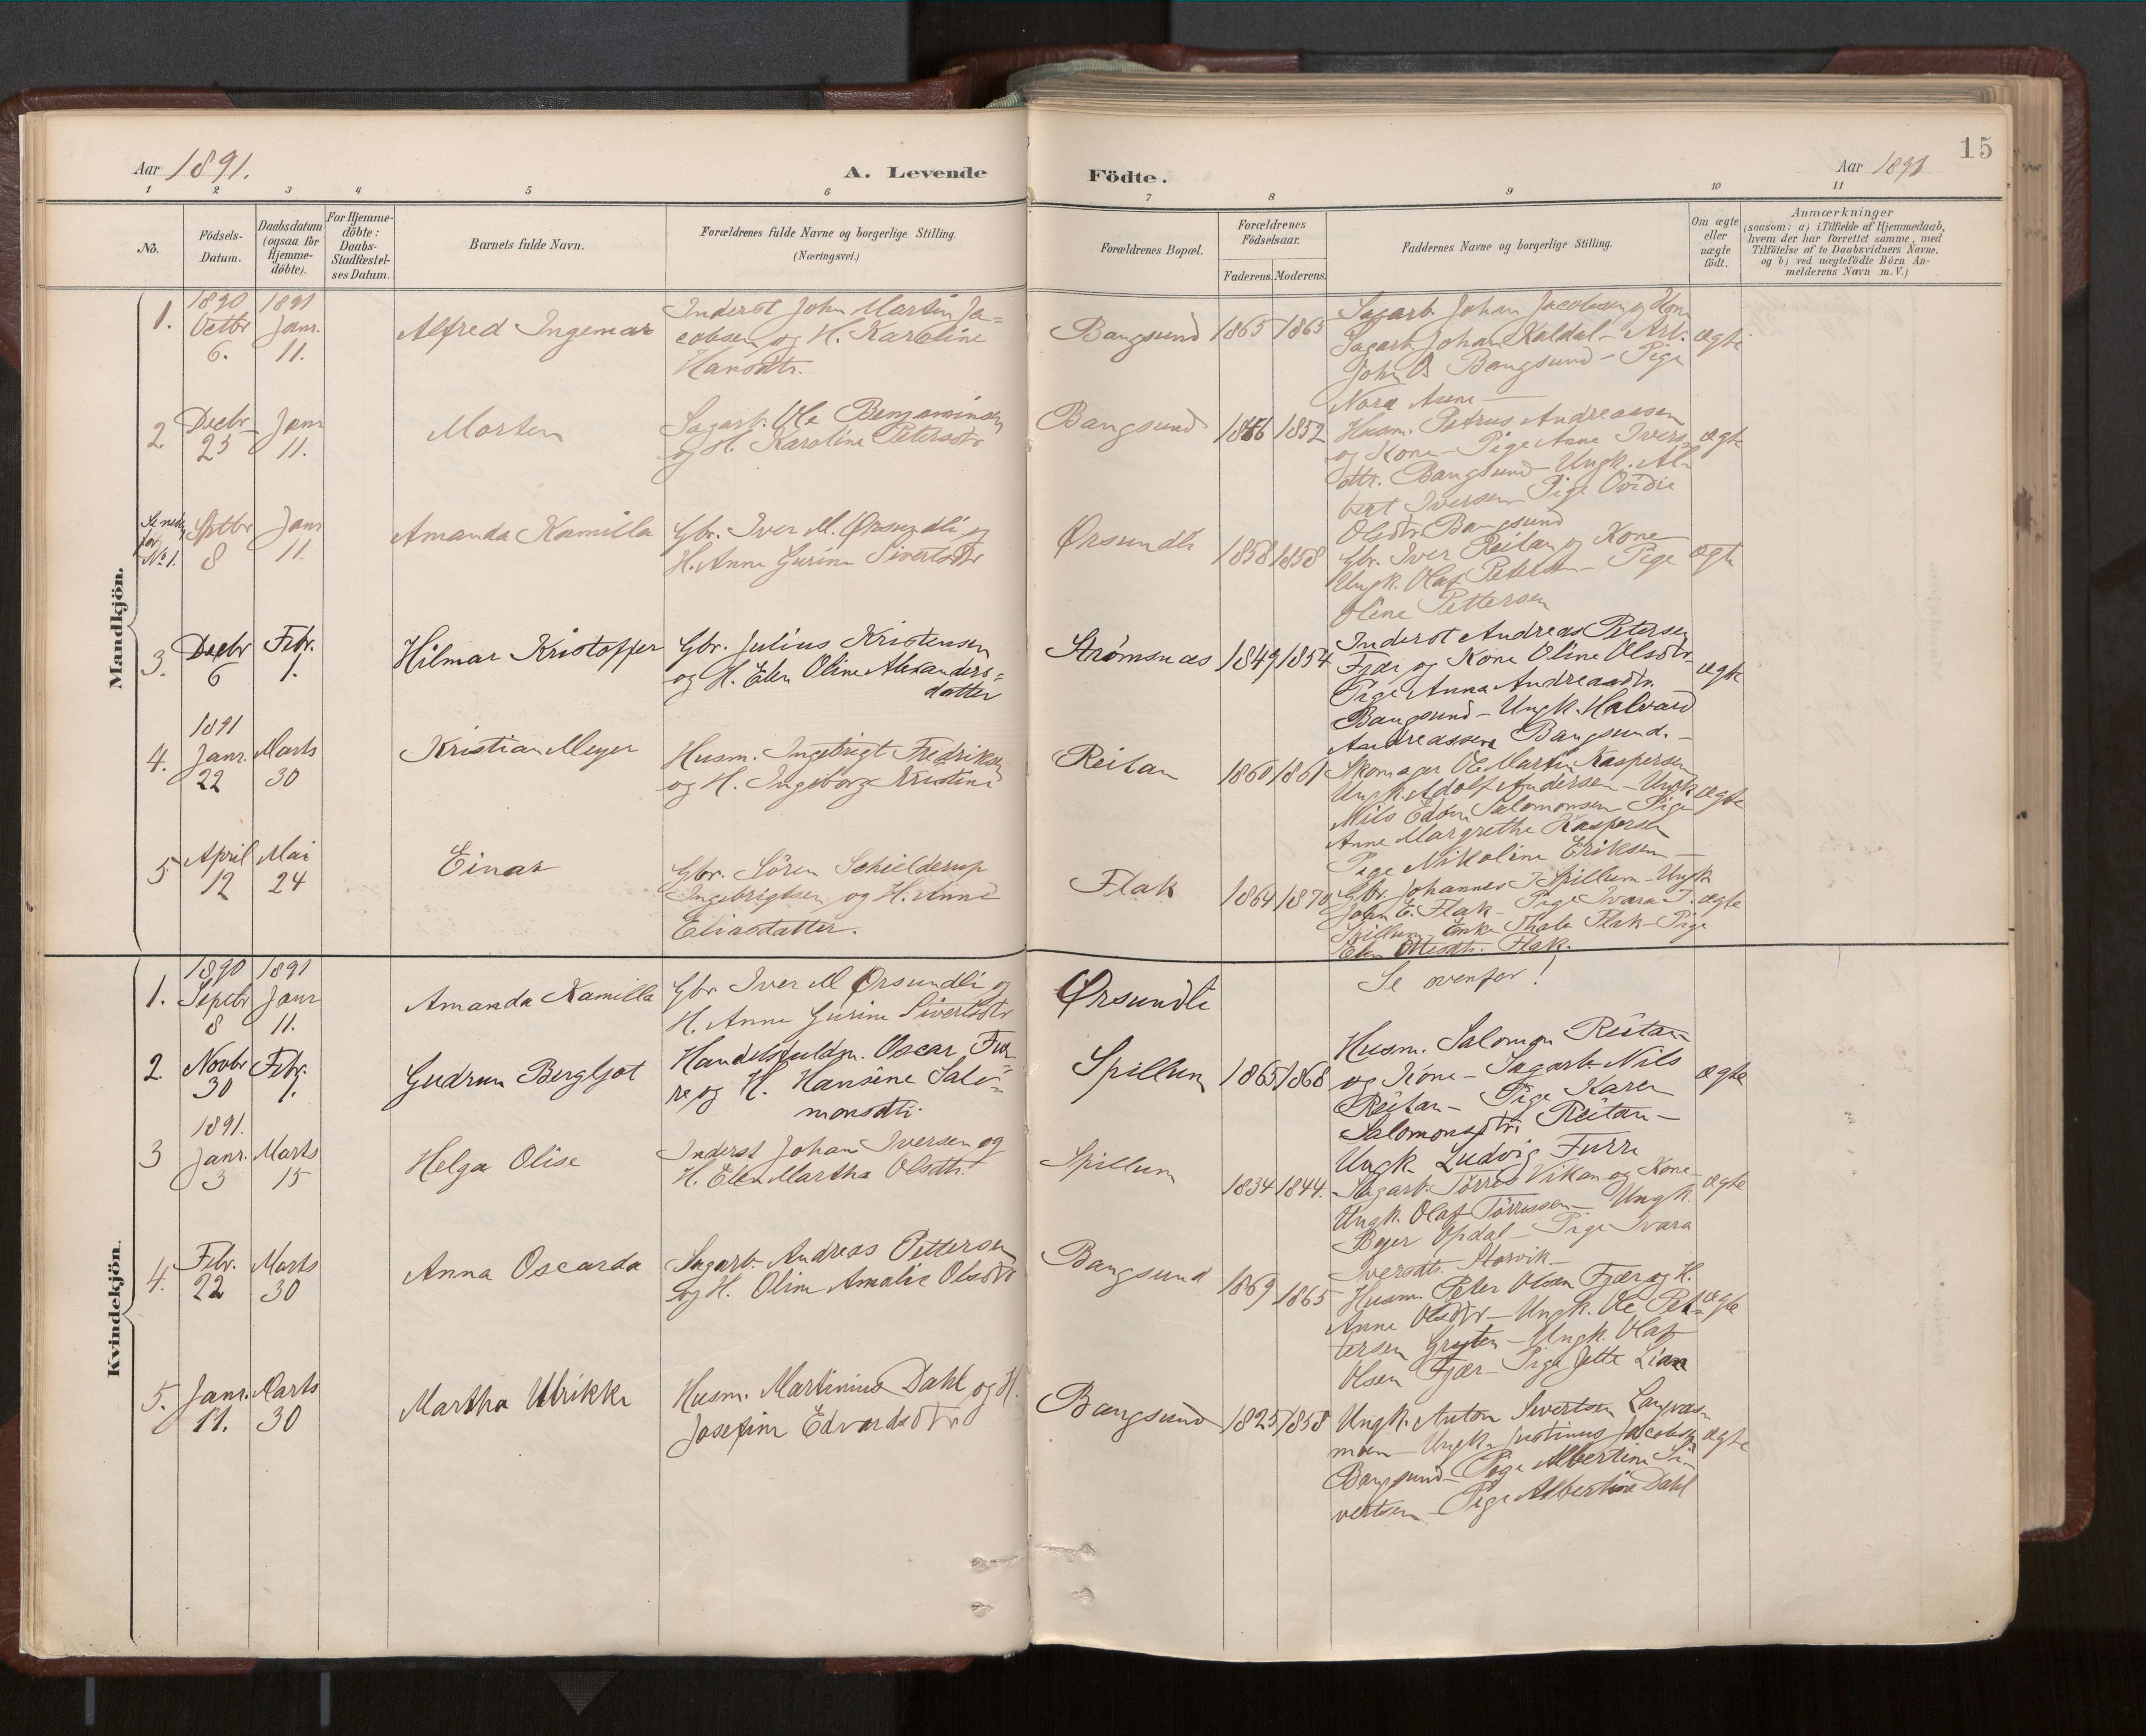 15
Aar 1891.
A. Levende
Födte.
Aar 1891
1 2 3 4 5 6 7 8 9 10 11
No.
Födsels-
Datum.
Daabsdatum
(ogsaa for
Hjemme-
döbte).
For Hjemme-
döbte:
Daabs-
Stadfæstel-
ses Datum.
Barnets fulde Navn.
Forældrenes fulde Navne og borgerlige Stilling.
(Næringsvei.)
Forældrenes Bopæl.
Forældrenes
Födselsaar.
Faderens. Moderens.
Faddernes Navne og borgerlige Stilling.
Om ægte
eller
uægte
födt.
Anmærkninger
(saasom: a) i Tilfælde af Hjemmedaab,
hvem der har forrettet samme, med
Tilföielse af to Daabsvidners Navne.
og b) ved uægtefödte Börn An-
melderens Navn m. V.)
Mandkjön.
1.
1890
Octbr
6.
1891
Janr.
11.
Alfred Ingemar
Inderst John Martin Ja=
cobsen og H. Karoline
Hansdtr.
Bangsund
1865 1865
Sagarb. Johan Jacobsen og Kone
Sagarb. Johan Kaldal - Arb.
John O. Bangsund - Pige
Nora Aune
ægte
2.
Decbr
23
Janr
11.
Morten
Sagarb. Ole Benjaminsen
og H. Karoline Petersdtr
Bangsund
1852
Husm. Petrus Andreassen
og Kone - Pige Anne Ivers=
dtr. Bangsund - Ungk. Al=
bert Iversen Pige Ovidie
Olsdtr. Bangsund
ægte
Se neden
for
No 1.
Septbr
8
Janr
11.
Amanda Kamilla
Gbr. Iver M. Ørsundli og
H. Anne Gurine Sivertsdtr
Ørsundli
1858 1858
Gbr. Iver Reitan og Kone
Ungk. Olaf Petersen - Pige
Oline Pettersen
ægte
3.
Decbr
6
Febr.
1.
Hilmar Kristoffer
Gbr. Julius Kristensen
og H. Elen Oline Alexanders=
datter
Strömsnæs
1849 1854
Inderst Andreas Petersen
Fjær og Kone Oline Olsdtr
Pige Anna Andreasdtr.
Bangsund - Ungk. Halvard
Andreassen Bangsund. -
ægte
4.
1891
Janr.
22
Marts
30
Kristian Meyer
Husm. Ingebrigt Fredriksen
og H. Ingeborg Kristine
Reitan
1860 1861
Skomager Ole Martin Kaspersen
Ungk. Adolf Andersen - Ungk
Nils Edvin Salomonsen Pige
Anne Margrethe Kaspersen
Pige Nikoline Eriksen -
ægte
5
April
12
Mai
24
Einar
Gbr. Sören Schielderup
Ingebrigtsen og H. Anne
Eliasdatter.
Flak
1864 1870
Gbr. Johannes J. Spillum - Ungk
John E. Flak - Pige Ivara J.
Spillum Enke Thale Flak - Pige
Elen Ottesdtr. Flak.
ægte
Kvindekjön.
1.
1890
Septbr
8
1891
Janr
11.
Amanda Kamilla
Gbr. Iver M Ørsundli og
H. Anne Gurine Sivertsdtr
Ørsundli
Se ovenfor!
2
Novbr
30
Febr.
1.
Gudrun Bergljot
Handelsfuldm. Oscar Fur=
re og H. Hansine Salo=
monsdtr.
Spillum
1865 1868
Husm. Salomon Reitan
og Kone - Sagarb. Nils
Reitan - Pige Karen
Salomonsdtr. Reitan -
Ungk Ludvig Furre
ægte
3
1891.
Janr.
3
Marts
15
Helga Olise
Inderst Johan Iversen og
H. Elen Martha Olsdtr.
Spillum
1834 1844.
Sagarb. Törris Vikan og Kone
Ungk. Olaf Törrissen - Ungk.
Bejer Opdal - Pige Ivara
Iversdtr. Storvik -
ægte
4.
Febr.
22
Marts
30
Anna Oscarda
Sagarb. Andreas Pettersen
og H. Oline Amalie Olsdtr
Bangsund
1869 1865
Husm. Peter Olsen Fjær og H.
Anne Olsdtr - Ungk. Ole Pet=
tersen Gryten - Ungk. Olaf
Olsen Fjær - Pige Jette Lian
ægte
5.
Janr.
11.
Marts
30
Martha Ulrikke
Husm. Martinius Dahl og H.
Josefine Edvardsdtr
Bangsund
1825 1858
Ungk. Anton Sivertsen Langnæs=
moen - Ungk. Justinus Jacobsen
Bangsund - Pige Albertine Si=
vertsen - Pige Albertine Dahl
ægte